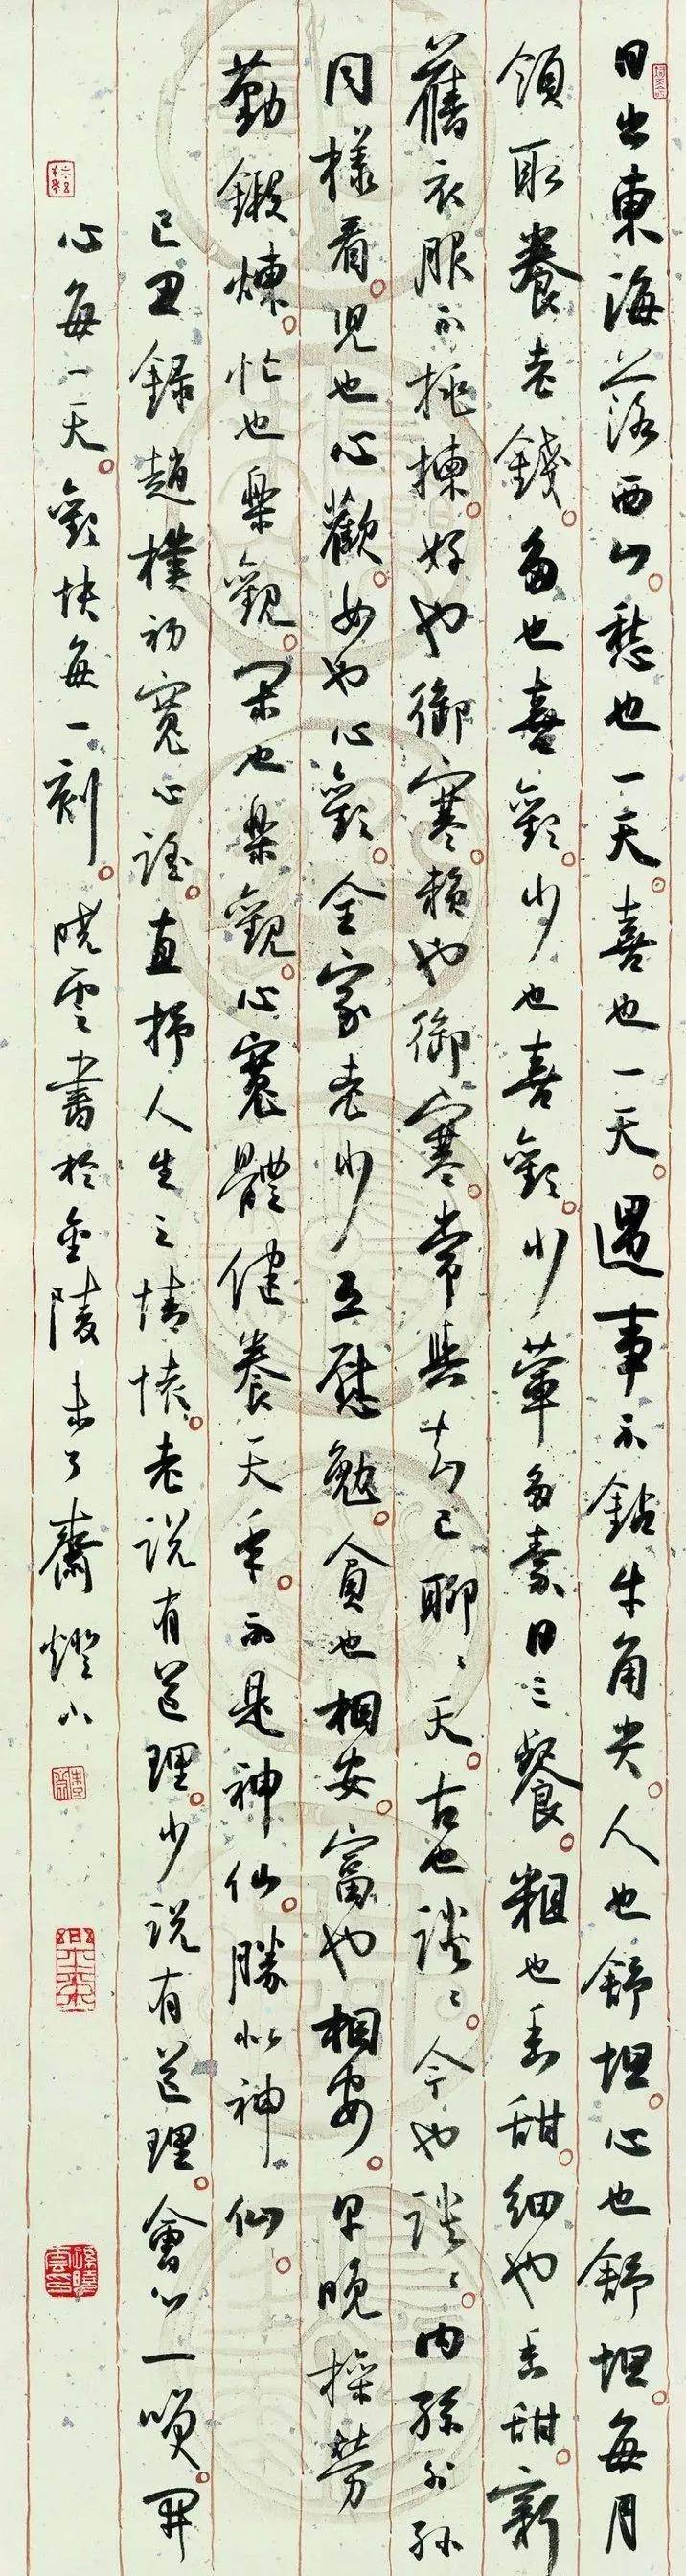 日出東海落西山愁也一天喜也一天遇事不鉆牛角尖人也舒坦心也舒坦每月
領取養老錢多也喜歡少也喜歡少葷多素日三餐粗也香甜細也香甜新
舊衣服不挑揀好也御寒賴也御寒常與知己聊聊天古也談談今也談談內孫外孫
同樣看兒也心歡女也心歡全家老少互慰勉貧也相安富也相安早晚操勞
勤鍛煉忙也樂觀閑也樂觀心寬體健養天年不是神仙勝似神仙
己丑錄趙樸初寬心謠直抒人生之情懷老說有道理少說有道理會心一笑開
心每一天歡快每一刻曉雲書於金陵未了齋燈下